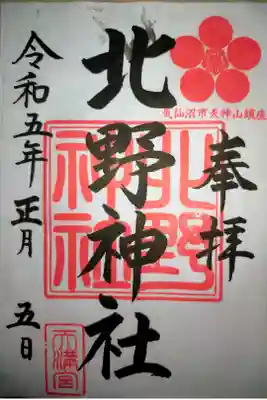 奉拝
気仙沼市天神山鎮座
北野神社
北野神社
令和五年正月五日
天満宮